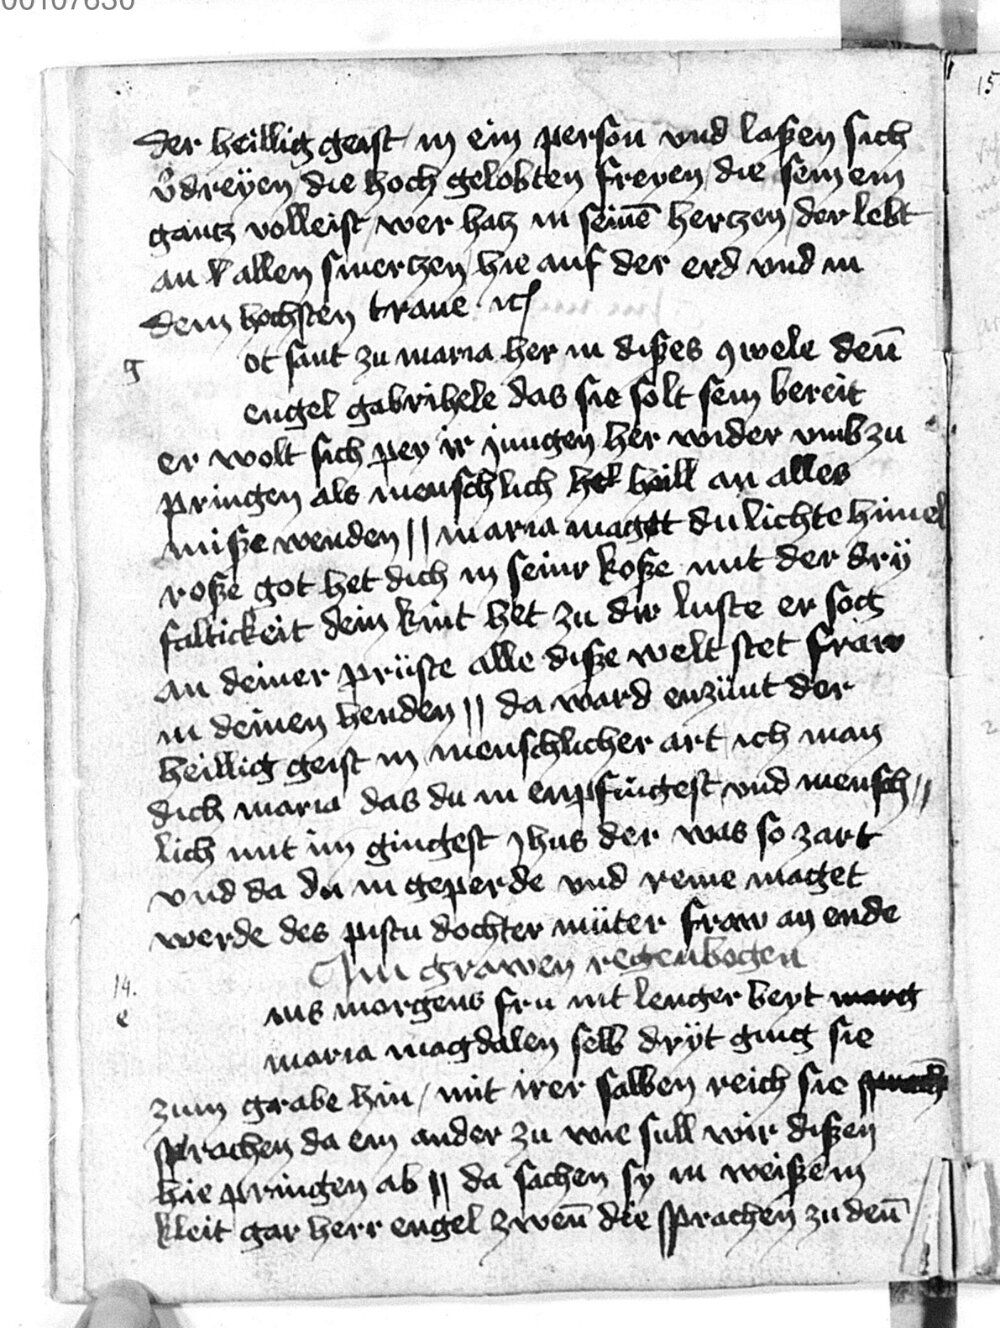 00107630
15
der heillig geist in ein person vnd laßen sich
v̊dreÿen / die hoch gelobten freyen / die sein ein
gantz volleist / wer hatz in seinē hertzen / der lebt
an allen smertzen / hie auf der erd vnd in
dem hochsten traue · ıc
g
ot sant zu maria her in dißes qwele deū
engel gabrihele das sie solt sein bereit
er wolt sich pey ir jungen her wider vmb zu
pringen als menschlich heill an alles
miße wenden || maria maget du lichte himel
roße got het dich in seinr koße mit der drÿ
faltickeit dein kint het zu dir luste er sog
an deiner prüste alle diße welt stet fraw
in deinen henden || da ward enzünt der
heillig geist in menschlicher art ich man
dich maria das du in enpfingest vnd mensch //
lich mit im gingest jhus der was so zart
vnd da du in geperde vnd reine maget
werde des pistu dochter müter fraw an ende
Im grawen regenbogen
14.
e
ins morgens fru nit lenger beyt
maria magdalen selb drÿt ging sie
zum grabe hin / mit irer salben reich sie
sprachen da ein ander zu wie sull wir dißen
hie pringen ab || da sachen sy in weißem
kleit gar herr engel zwen̄ die sprachen zu den̄